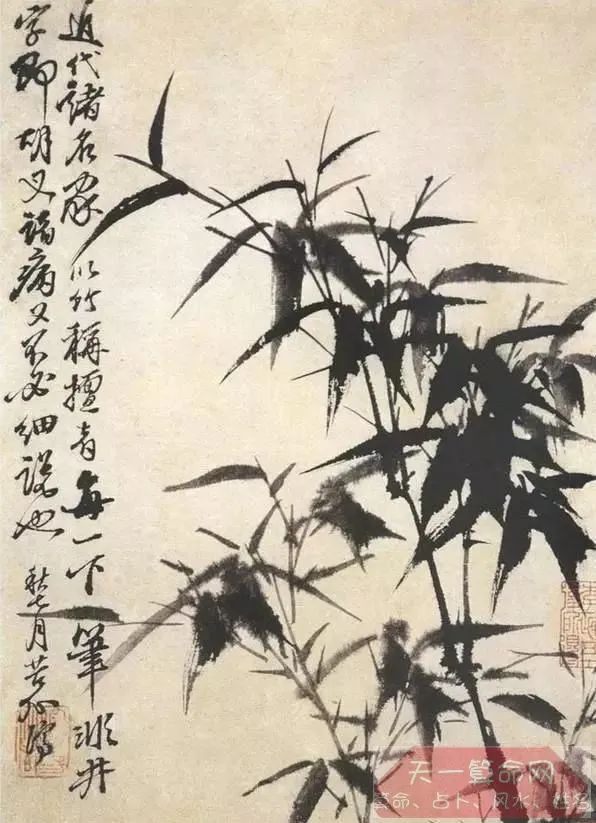 近代諸名家以竹稱擅者每一下筆非井
字即胡叉諸病又不必細說也
秋七月苦瓜寫
天一算命网
算命、占卜、风水、姓名